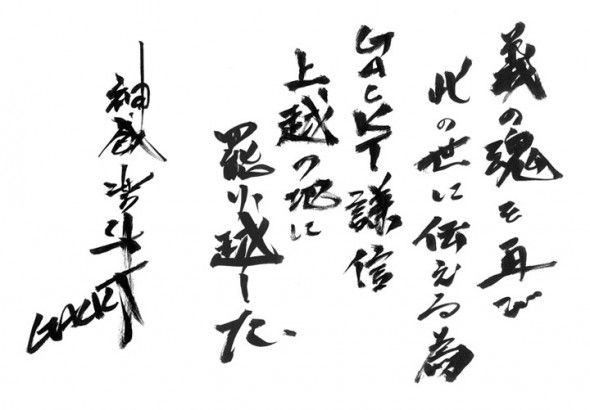 義の魂を再び
此の世に伝える為
GACKT謙信
上越の地に
罷り越した
神威楽斗
GACKT